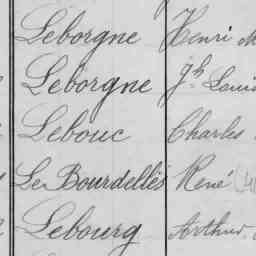 Leborgne Henri M
Leborgne Jh Louis
Lebouc Charles
Le Bourdellès René
Lebourg Arthur